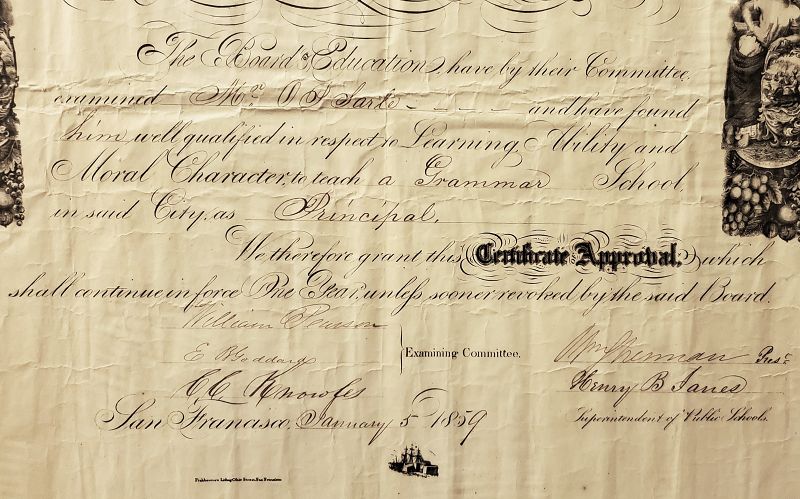 The Board of Education, have by their Committee,
examined Mr. O J and have found
him, well qualified in respect to Learning, Ability and
Moral Character, to teach a Grammar School,
in said City, as Principal.
We therefore grant this Certificate Approval, which
shall continue in force One Year, unless sooner revoked by the said Board.
William Pearson
E B Goddard
C C Knowles
Examining Committee.
Wm Sherman Prest.
Henry B Janes
Superintendent of Public Schools.
San Francisco, January 5 1859
Lithog. Ohio Street, San Francisco